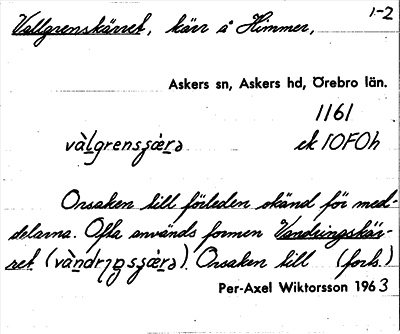 1-2
Vallgrenskärret, kärr å Himmer,
Askers sn, Askers hd, Örebro län.
1161
vàlgrensʒærə ek 10F0h
Orsaken till förleden okänd för med-
delarna. Ofta används formen Vandringskär-
ret (vàndrɪŋsʒærə). Orsaken till (forts.)
Per-Axel Wiktorsson 1963